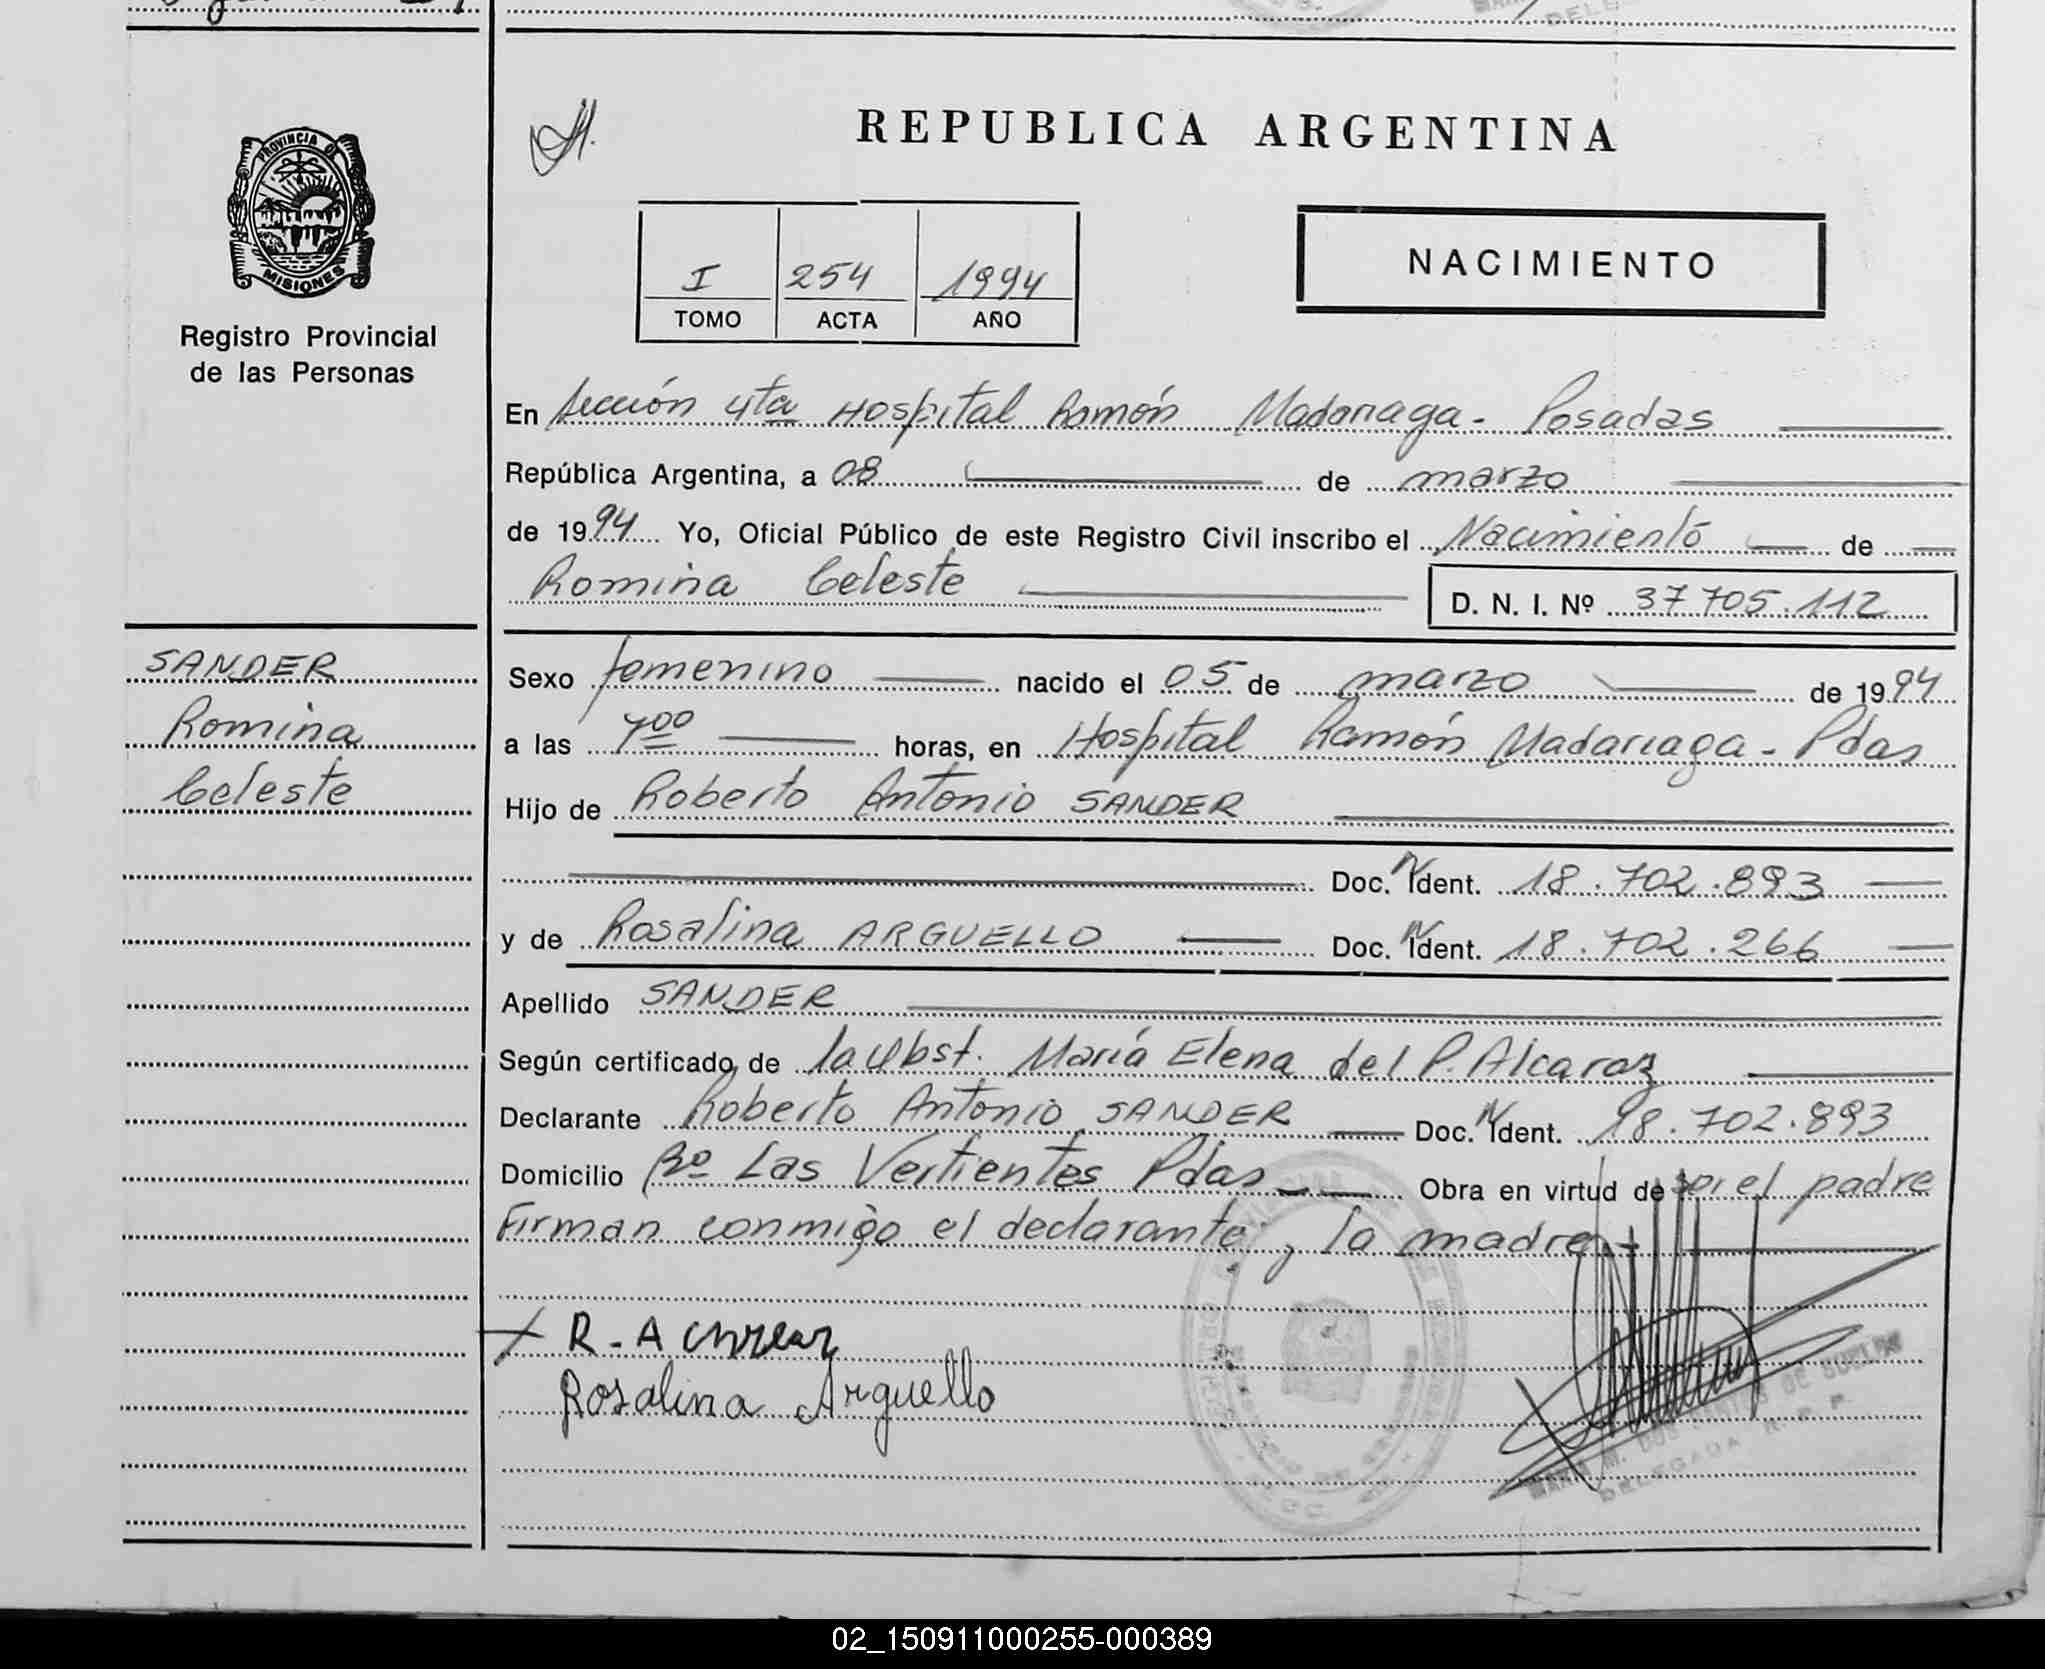 REPUBLICA ARGENTINA
PROVINCIA DE
MISIONES
Registro Provincial
de las Personas
I 254 1994
TOMO ACTA AÑO
NACIMIENTO
En Sección 4ta Hospital Ramón Madariaga - Posadas
República Argentina, a 08 de marzo
de 1994 Yo, Oficial Público de este Registro Civil inscribo el Nacimiento de
Romina Celeste
D. N. I. Nº 37 705.112
SANDER
Romina
Celeste
Sexo femenino nacido el 05 de marzo de 1994
a las 7 00 horas, en Hospital Ramón Madariaga - Pdas
Hijo de Roberto Antonio SANDER
Doc. N Ident. 18.702.893
y de Rosalina ARGUELLO Doc. N Ident. 18.702.266
Apellido SANDER
Según certificado de la Obst. María Elena del P. Alcaraz
Declarante Roberto Antonio SANDER Doc. N Ident. 18.702.893
Domicilio Bº Las Vertientes Pdas Obra en virtud de ser el padre
Firman conmigo el declarante y la madre
R. A
Rosalina Arguello
MARIA M. DOS SANTOS DE
DELEGADA R. P. P.
02_150911000255-000389